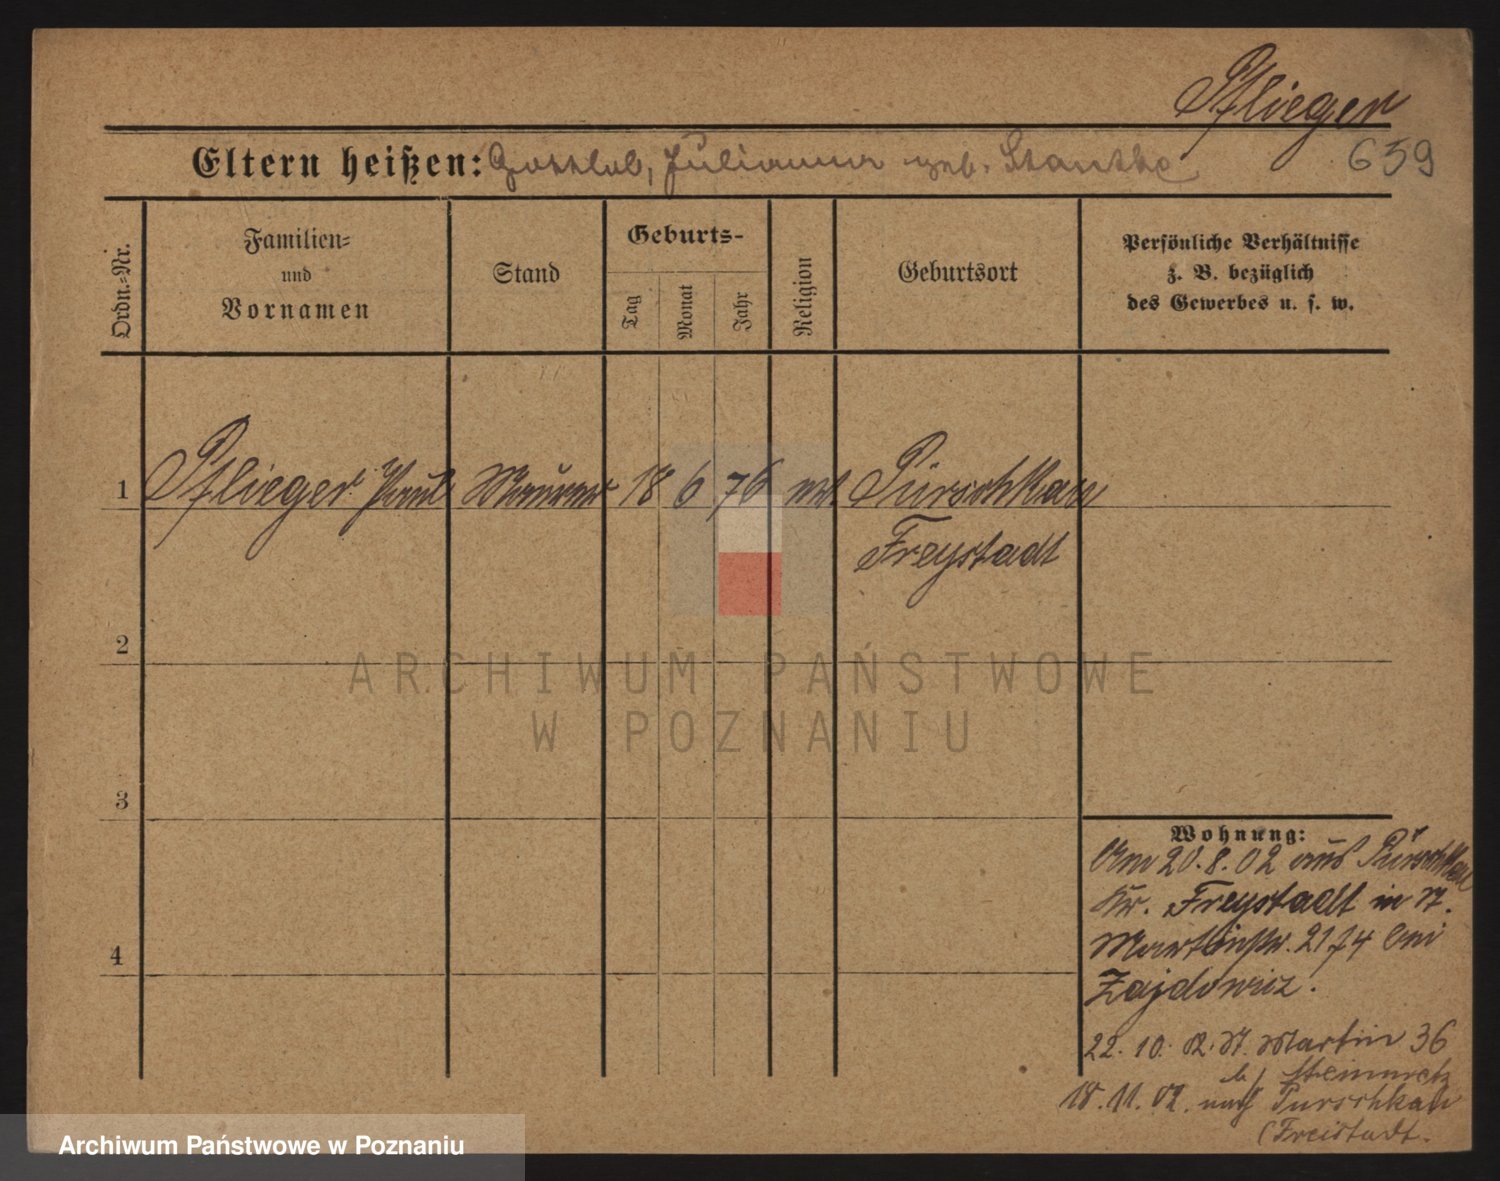 Pflieger
Eltern heißen: Gottlob, Julianna geb. Stantke
659
Ordn.-Nr.
Familien-
und
Vornamen
Stand
Geburts-
Tag
Monat
Jahr
Religion
Geburtsort
Persönliche Verhältnisse
z. B. bezüglich
des Gewerbes u. s. w.
1 Pflieger Paul Maurer 18 6 76 ev. Pürschkau
Freystadt
2
3
4
Wohnung:
Am 20.8.02 aus Pürschkau
Kr. Freystadt in St.
Martinstr. 2174 bei
Zajdowicz.
22. 10. 02. St. Martin 36
b/ Steinmetz
18.11.02. nach Purschkau
(Freistadt.
ARCHIWUM PAŃSTWOWE
W POZNANIU
Archiwum Państwowe w Poznaniu